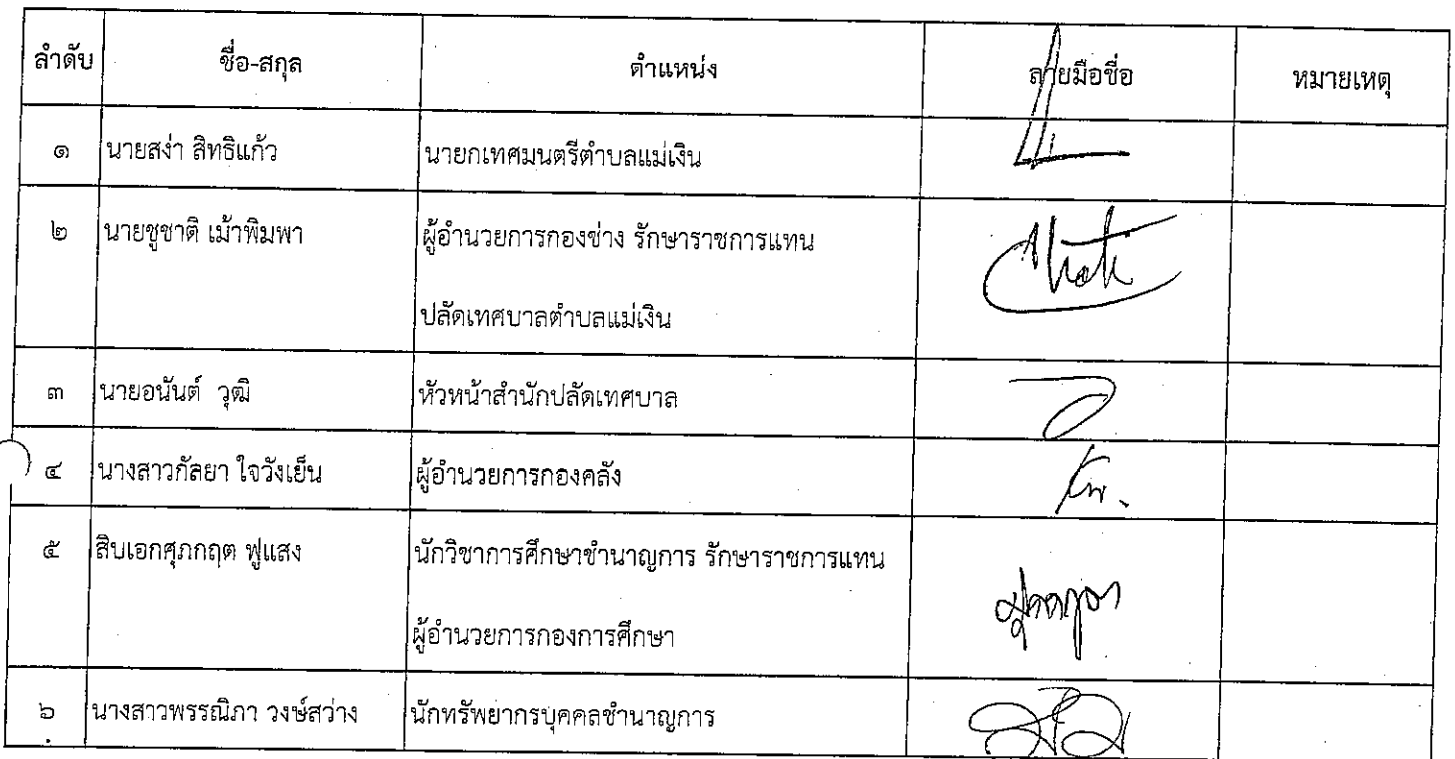 ลำดับ ชื่อ-สกุล ตำแหน่ง ลายมือชื่อ หมายเหตุ
๑ นายสง่า สิทธิแก้ว นายกเทศมนตรีตำบลแม่เงิน
๒ นายชูชาติ เม้าพิมพา ผู้อำนวยการกองช่าง รักษาราชการแทน
ปลัดเทศบาลตำบลแม่เงิน
๓ นายอนันต์ วุฒิ หัวหน้าสำนักปลัดเทศบาล
๔ นางสาวกัลยา ใจวังเย็น ผู้อำนวยการกองคลัง
๕ สิบเอกศุภกฤต ฟูแสง นักวิชาการศึกษาชำนาญการ รักษาราชการแทน
ผู้อำนวยการกองการศึกษา
๖ นางสาวพรรณิภา วงษ์สว่าง นักทรัพยากรบุคคลชำนาญการ